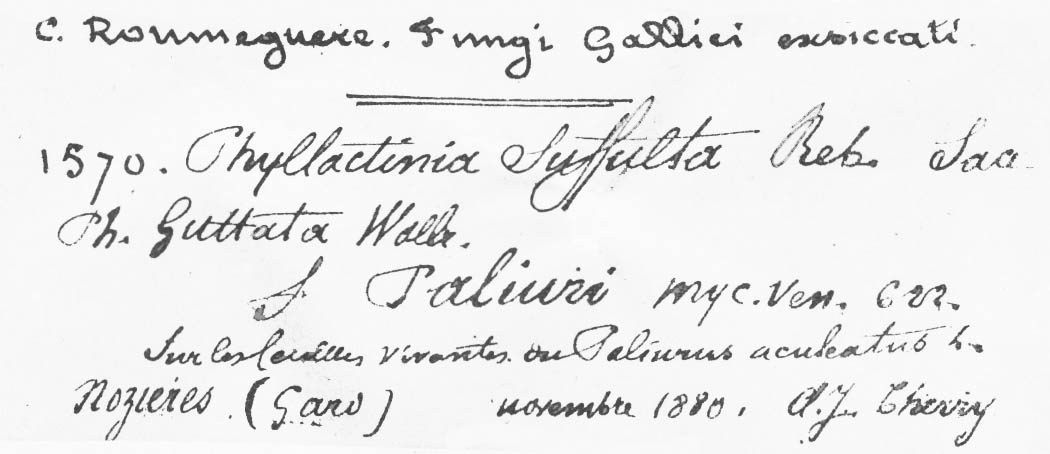 C. Roumeguere. Fungi Gallici exsiccati.
1570. Phyllactinia Suffulta Reb. Sac
Ph. Guttata Wallr.
f Paliuri Myc. Ven. 622.
Sur les feuilles vivantes du Paliurus aculeatus L.
Nozieres (Gard) novembre 1880. A. J. Therry